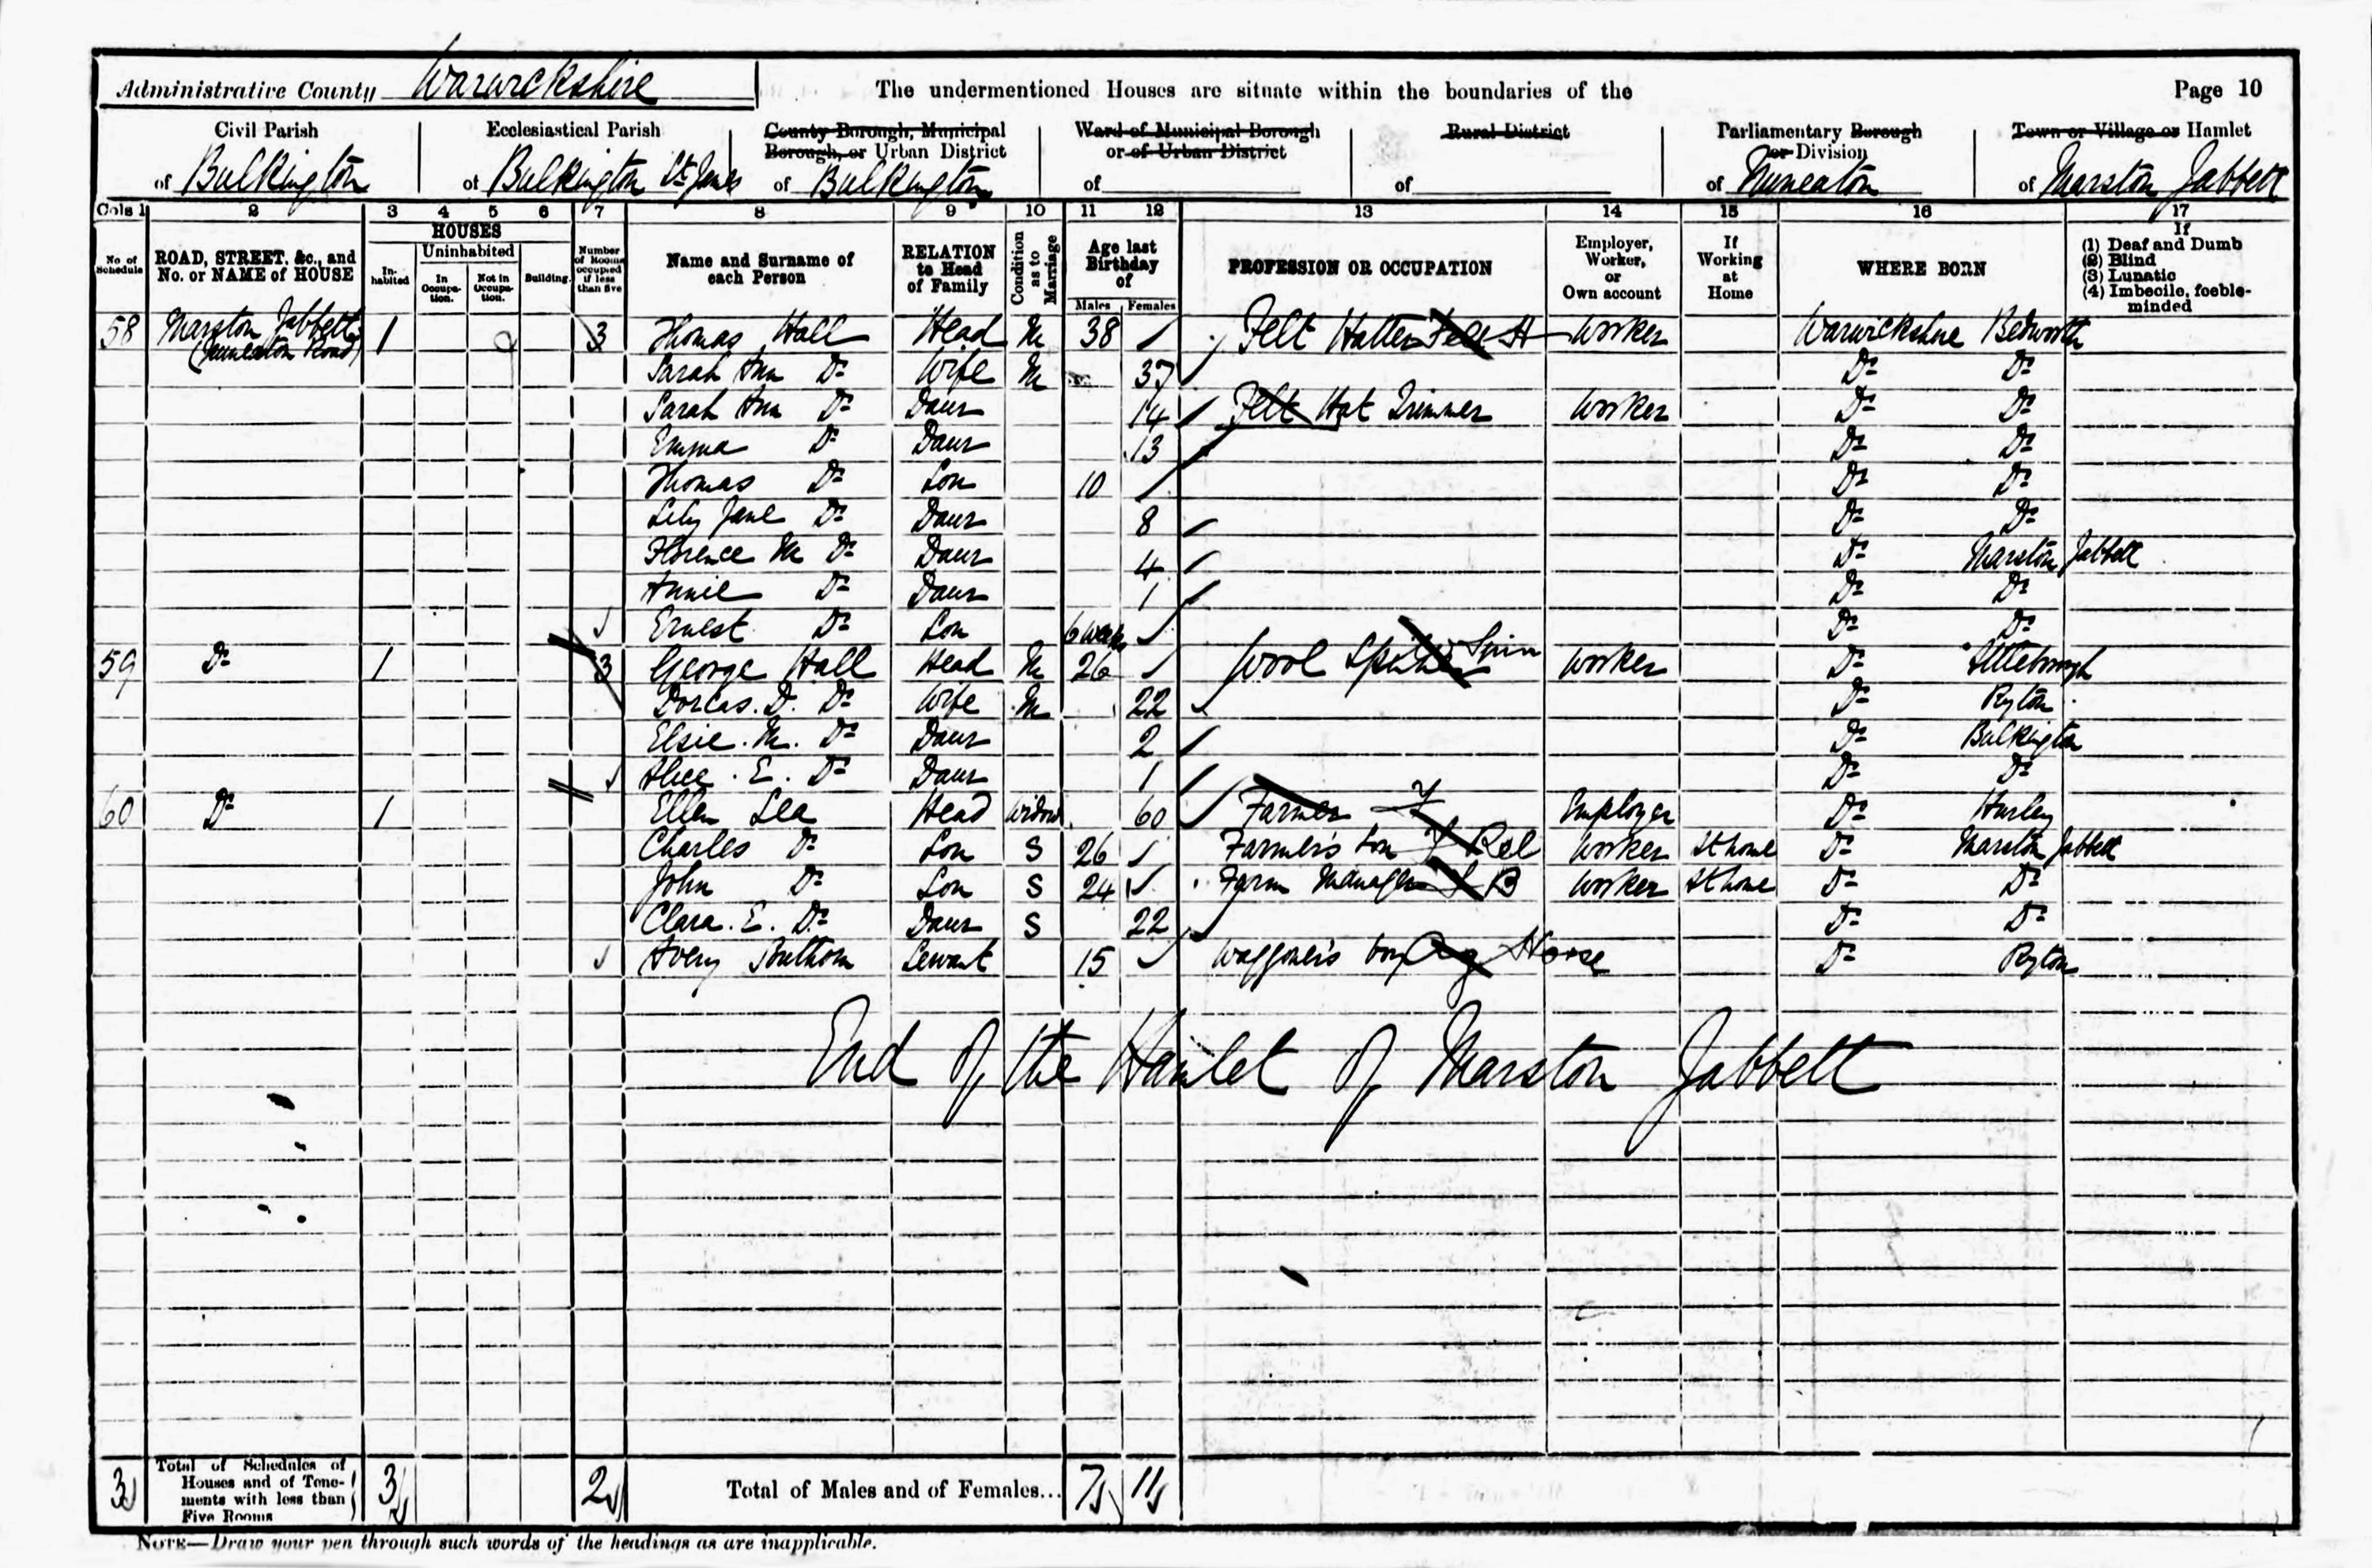 Administrative County Warwickshire The undermentioned Houses are situate within the boundaries of the Page 10
Civil Parish of Bulkington
Ecclesiastical Parish of Bulkington St James
County Borough, Municipal Borough, or Urban District of Bulkington
Ward of Municipal Borough or of Urban District of
Rural District of
Parliamentary Borough or Division of Nuneaton
Town or Village or Hamlet of Marston Jabbett
Cols 1 2 3 4 5 6 7 8 9 10 11 12 13 14 15 16 17
No. of Schedule
ROAD, STREET, &c., and No. or NAME of HOUSE
HOUSES
Inhabited
Uninhabited
In Occupation.
Not in Occupation.
Building.
Number of Rooms occupied if less than five
Name and Surname of each Person
RELATION to Head of Family
Condition as to Marriage
Age last Birthday of
Males Females
PROFESSION OR OCCUPATION
Employer, Worker, or Own account
If Working at Home
WHERE BORN
If
(1) Deaf and Dumb
(2) Blind
(3) Lunatic
(4) Imbecile, feeble-minded
58 Marston Jabbett (Nuneaton Road) 1 3 Thomas Hall Head M 38 Felt Hatter Felt H Worker Warwickshire Bedworth
Sarah Ann Do Wife M 37 Do Do
Sarah Ann Do Daur 14 Felt Hat Trimmer Worker Do Do
Emma Do Daur 13 Do Do
Thomas Do Son 10 Do Do
Lily Jane Do Daur 8 Do Do
Florence M Do Daur 4 Do Marston Jabbett
Annie Do Daur 1 Do Do
Ernest Do Son 6 weeks Do Do
59 Do 1 3 George Hall Head M 26 Wool Spinner Worker Do Attleborough
Dorcas. D. Do Wife M 22 Do Ryton
Elsie. M. Do Daur 2 Do Bulkington
Alice. E. Do Daur 1 Do Do
60 Do 1 Ellen Lea Head Widow 60 Farmer Employer Do Hurley
Charles Do Son S 26 Farmer's Son Rel Worker At home Do Marston Jabbett
John Do Son S 24 Farm Manager B Worker At home Do Do
Clara. E. Do Daur S 22 Do Do
Avery Servant 15 Waggoner's boy Ag Horse Do Ryton
End of the Hamlet of Marston Jabbett
3 Total of Schedules of Houses and of Tenements with less than Five Rooms 3 2 Total of Males and of Females... 7 11
NOTE—Draw your pen through such words of the headings as are inapplicable.